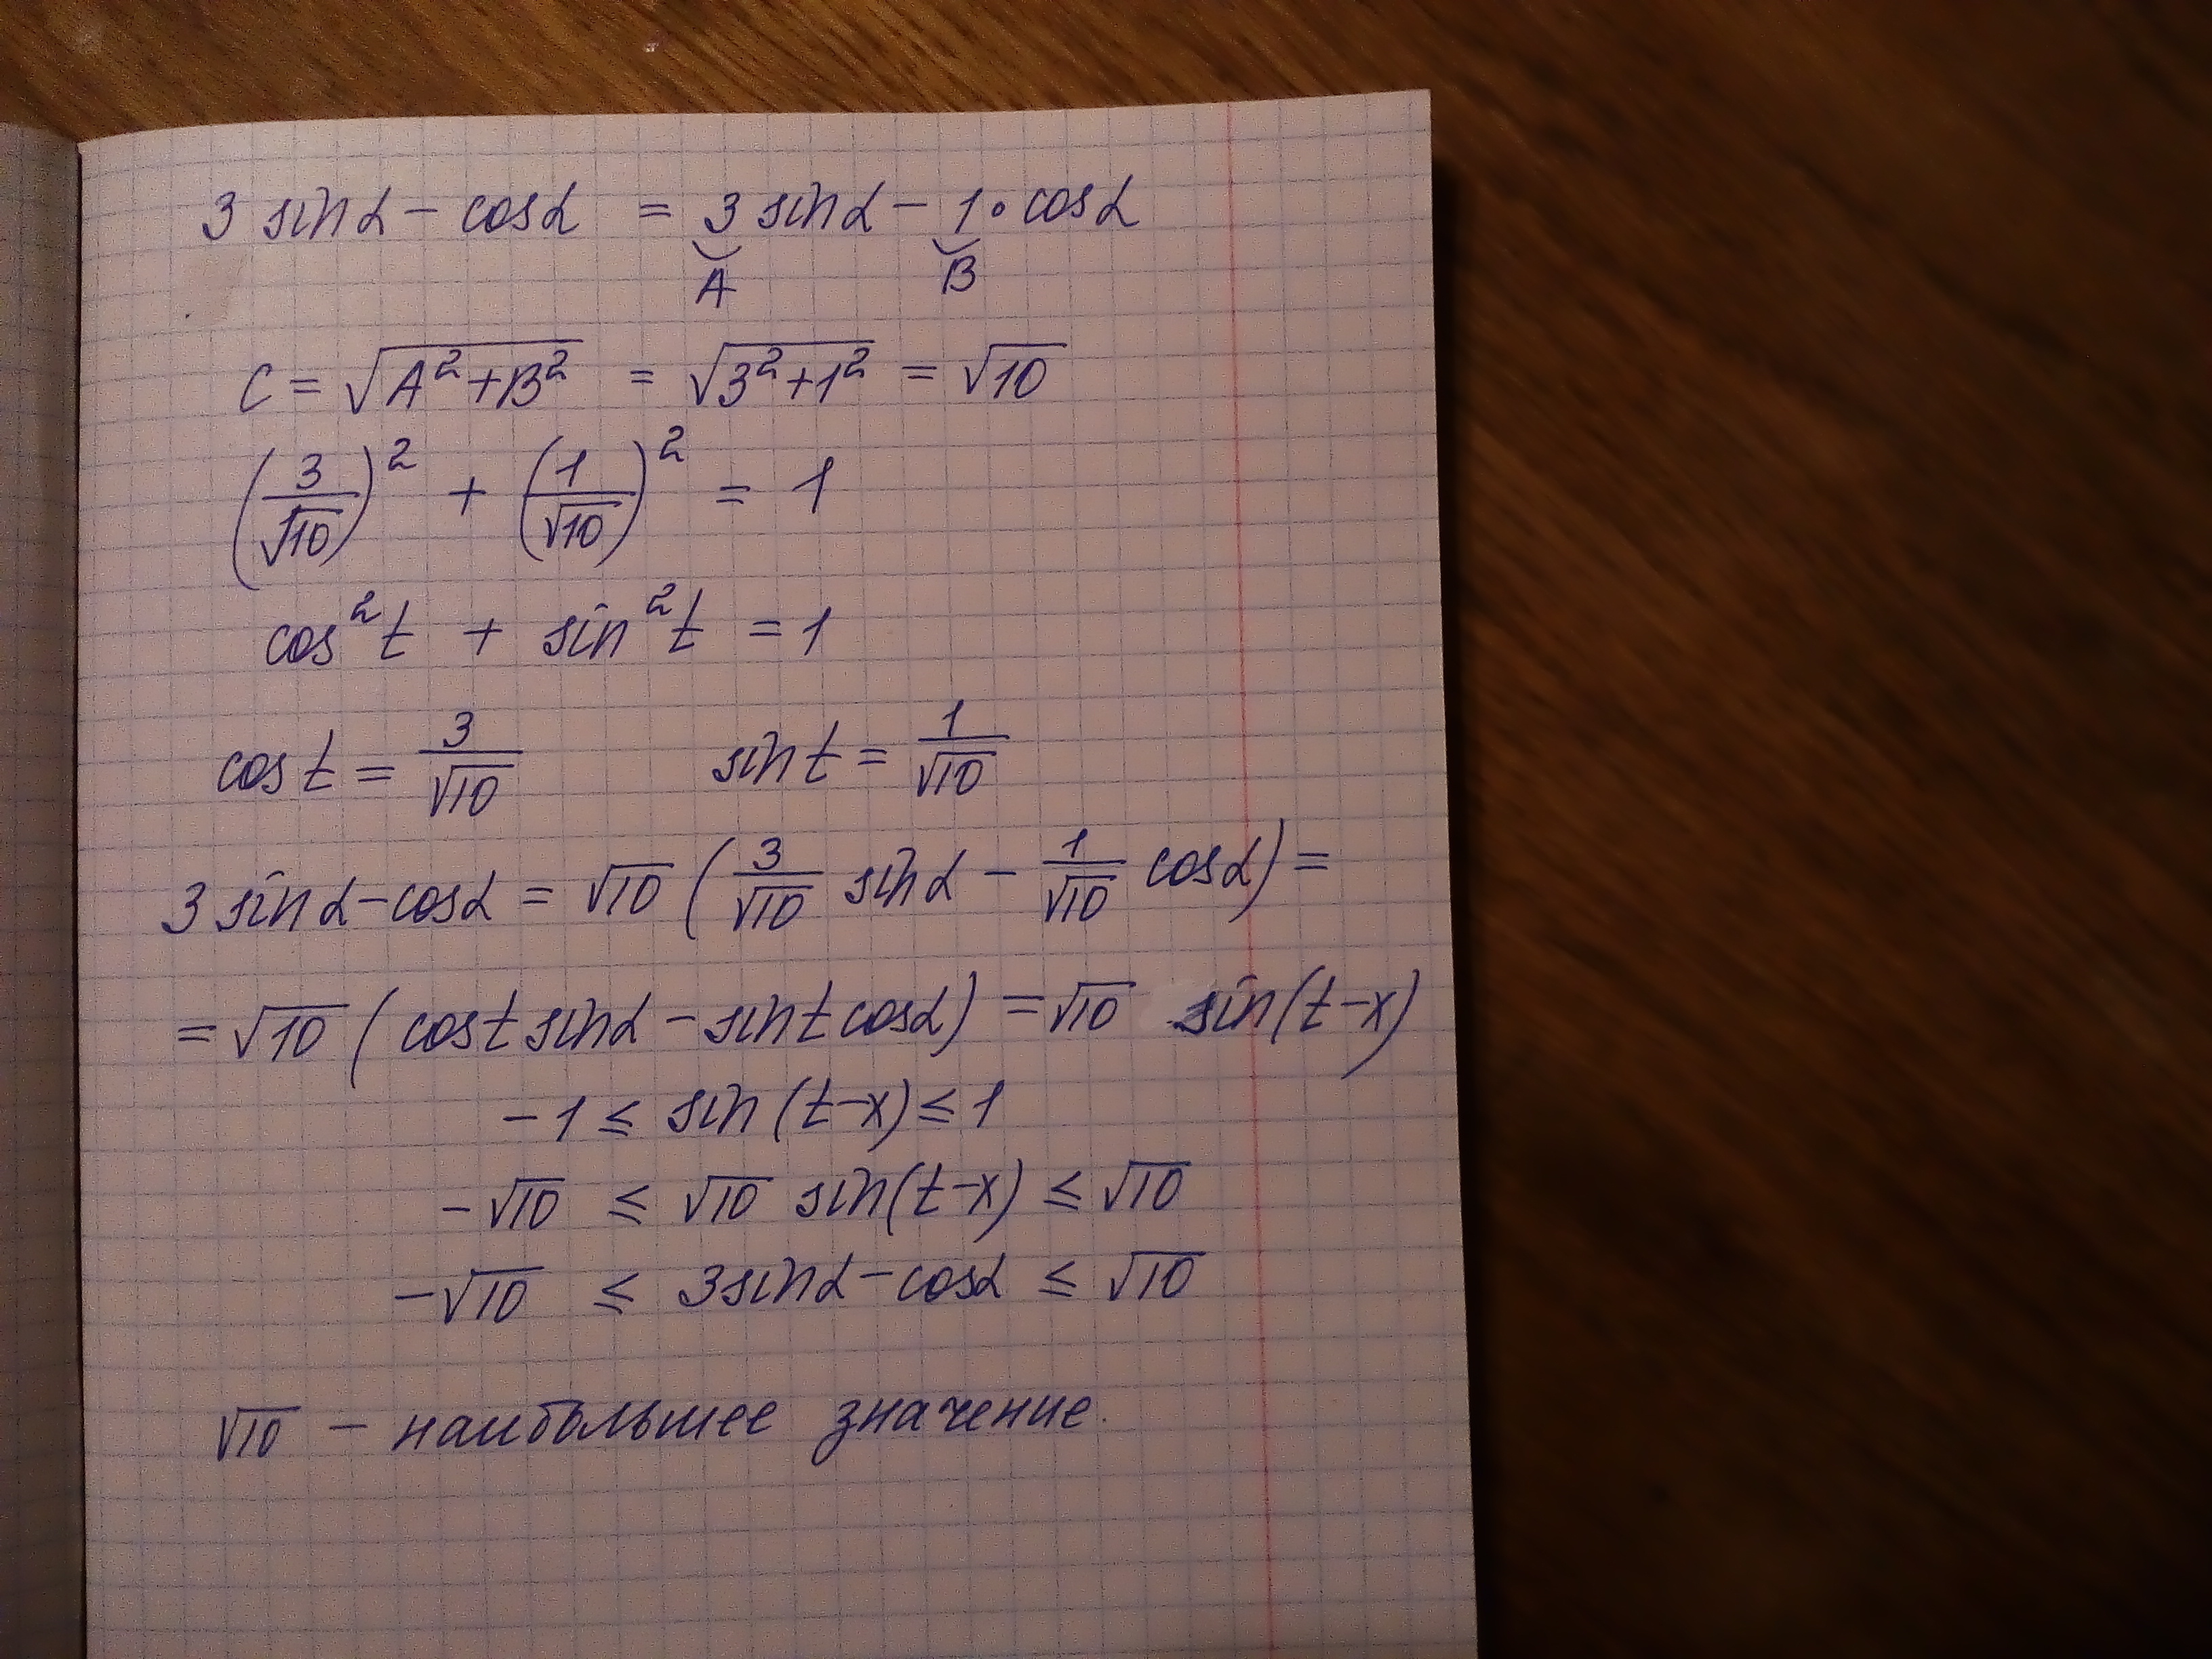 3 sinα - cosα = 3 sinα - 1 · cosα
A B
C = √(A² + B²) = √(3² + 1²) = √10
(3/√10)² + (1/√10)² = 1
cos²t + sin²t = 1
cos t = 3/√10 sin t = 1/√10
3 sinα - cosα = √10 (3/√10 sinα - 1/√10 cosα) =
= √10 (cos t sinα - sin t cosα) = √10 sin(t-x)
-1 ≤ sin(t-x) ≤ 1
-√10 ≤ √10 sin(t-x) ≤ √10
-√10 ≤ 3sinα - cosα ≤ √10
√10 - наибольшее значение.